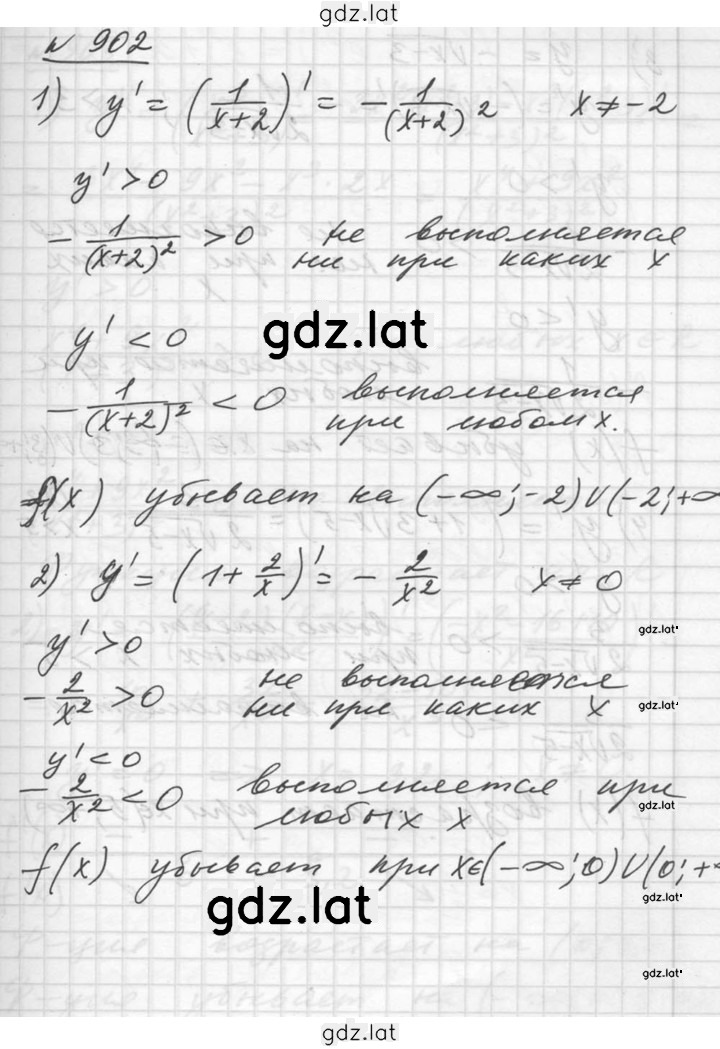 gdz.lat
№ 902
1) y' = (1/(x+2))' = - 1/(x+2)² x ≠ -2
y' > 0
- 1/(x+2)² > 0 не выполняется
ни при каких x
gdz.lat
y' < 0
- 1/(x+2)² < 0 выполняется
при любом x.
f(x) убывает на (-∞; -2) ∪ (-2; +∞
2) y' = (1 + 2/x)' = - 2/x² x ≠ 0
gdz.lat
y' > 0
- 2/x² > 0 не выполняется
ни при каких x
gdz.lat
y' < 0
- 2/x² < 0 выполняется при
любых x
gdz.lat
f(x) убывает при x∈(-∞; 0) ∪ (0; +∞
gdz.lat
gdz.lat
gdz.lat
gdz.lat